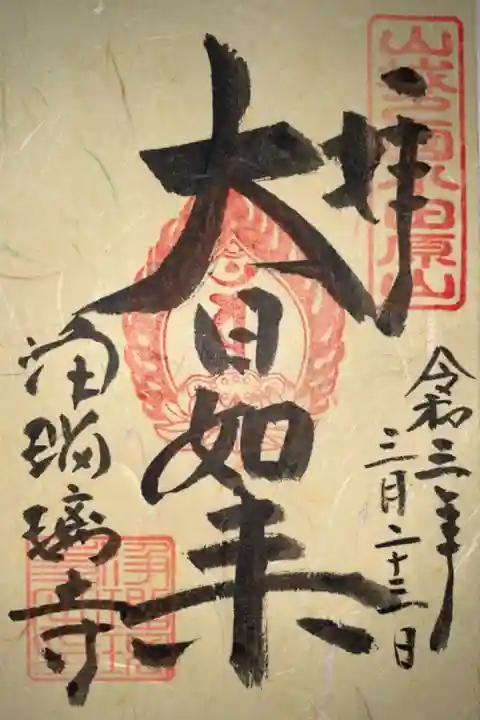 山城国西小田原山
拝
令和三年
三月二十三日
大日如来
浄瑠璃寺